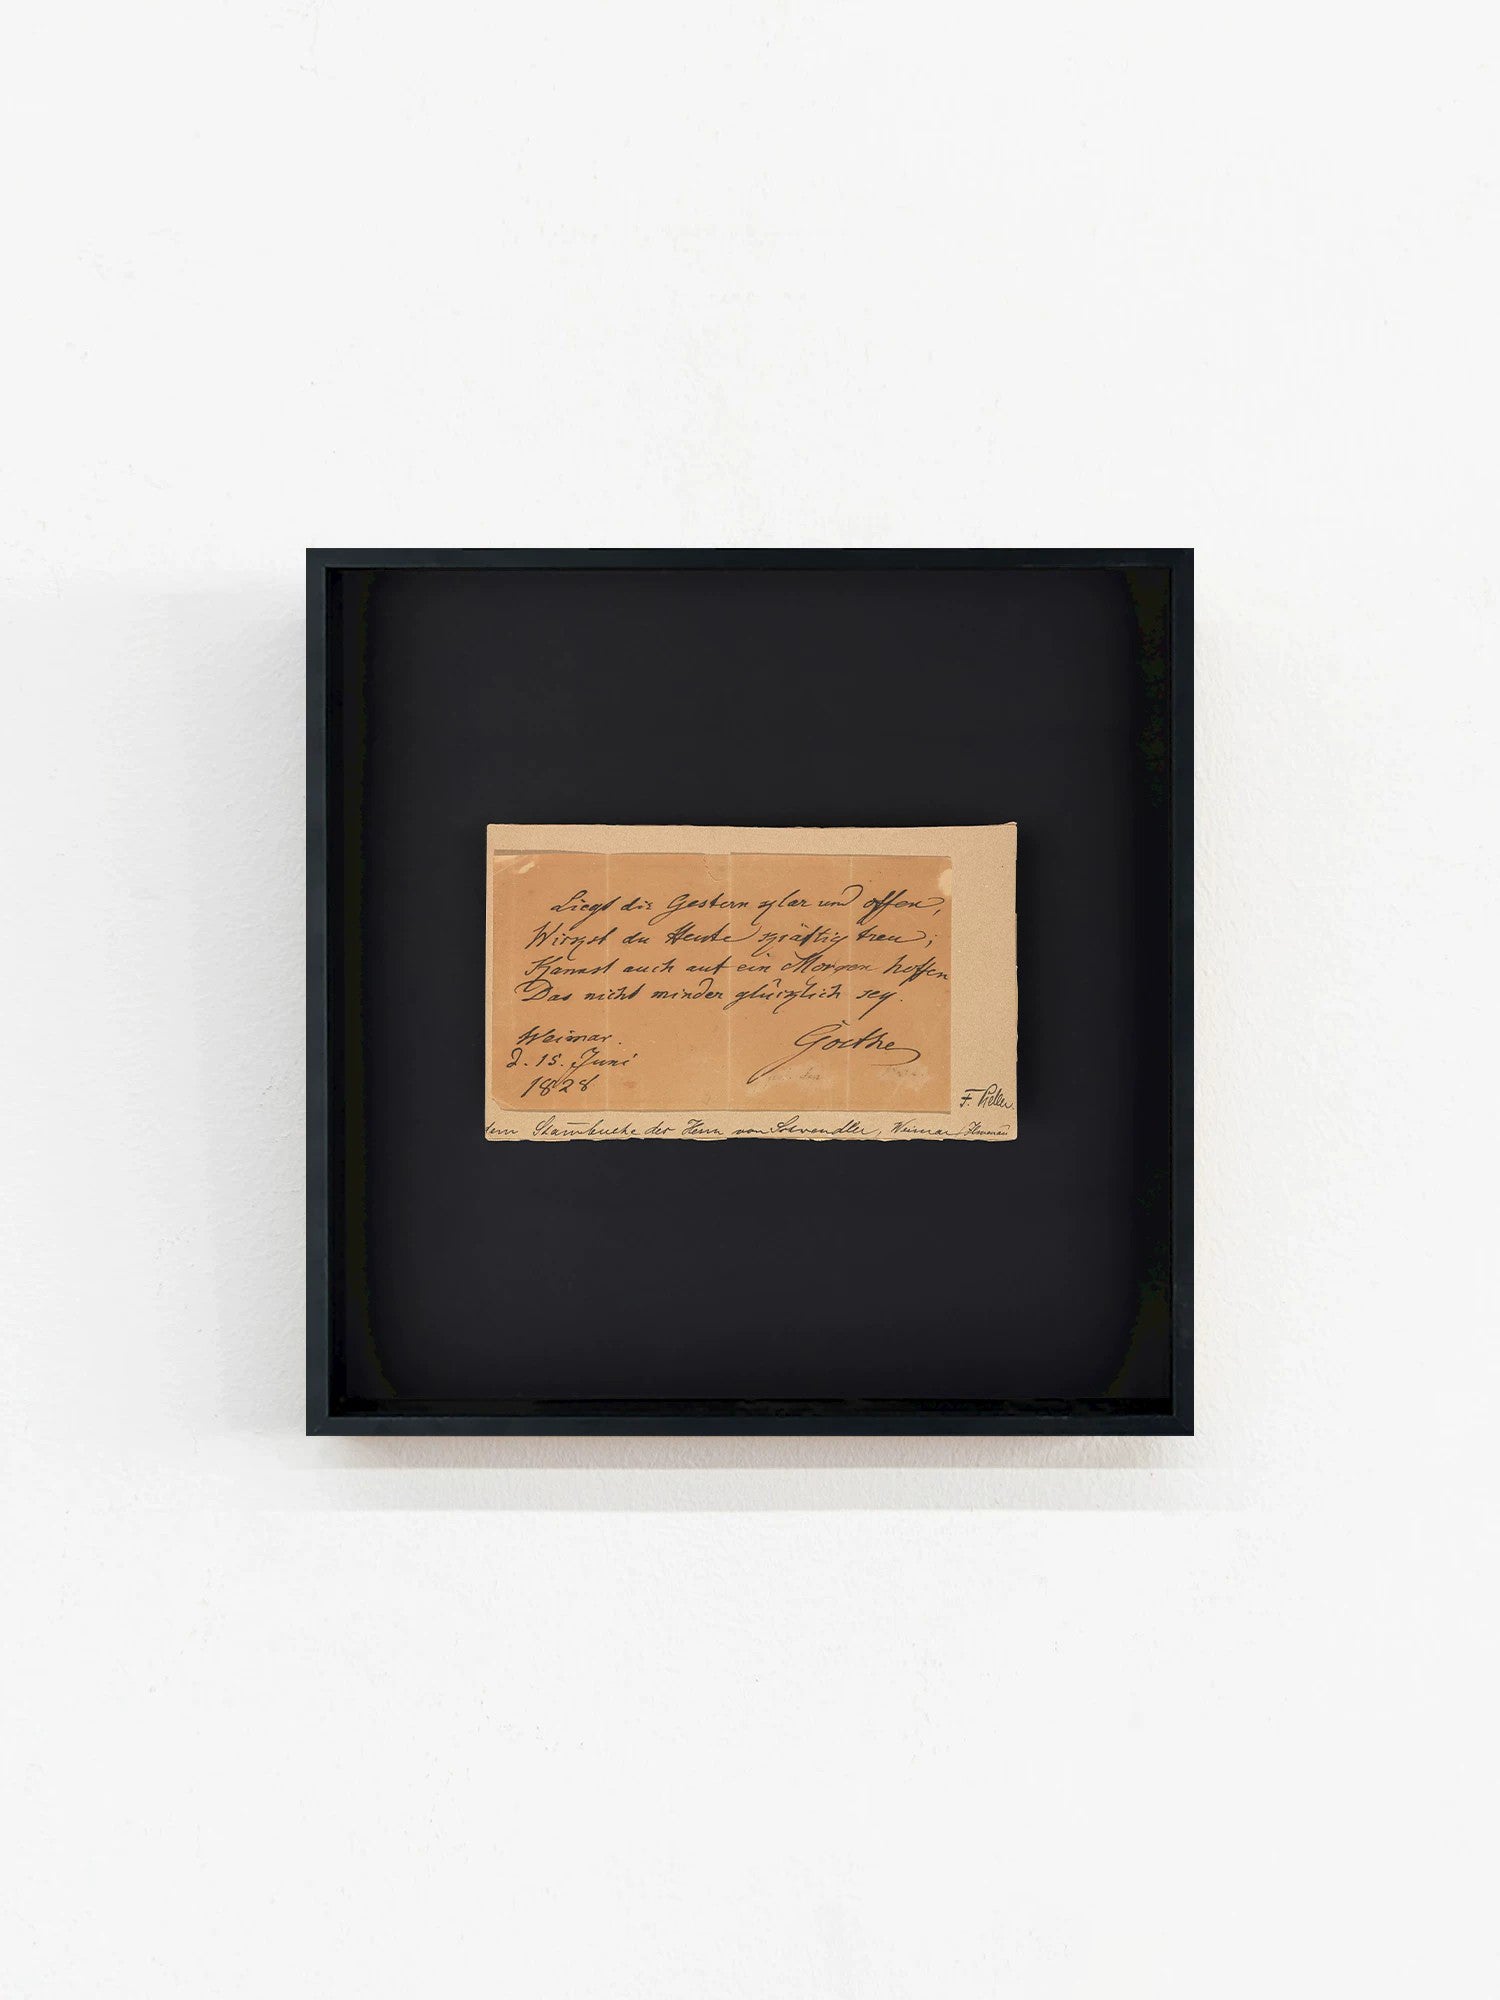 Liegt dir Gestern klar und offen,
Wirkst du Heute kräftig treu;
Kannst auch auf ein Morgen hoffen
Das nicht minder glücklich sey.
Weimar.
d. 15. Juni
1828
Goethe
F.
dem Stammbuche des Herrn von Schwendler, Weimar Ilmenau